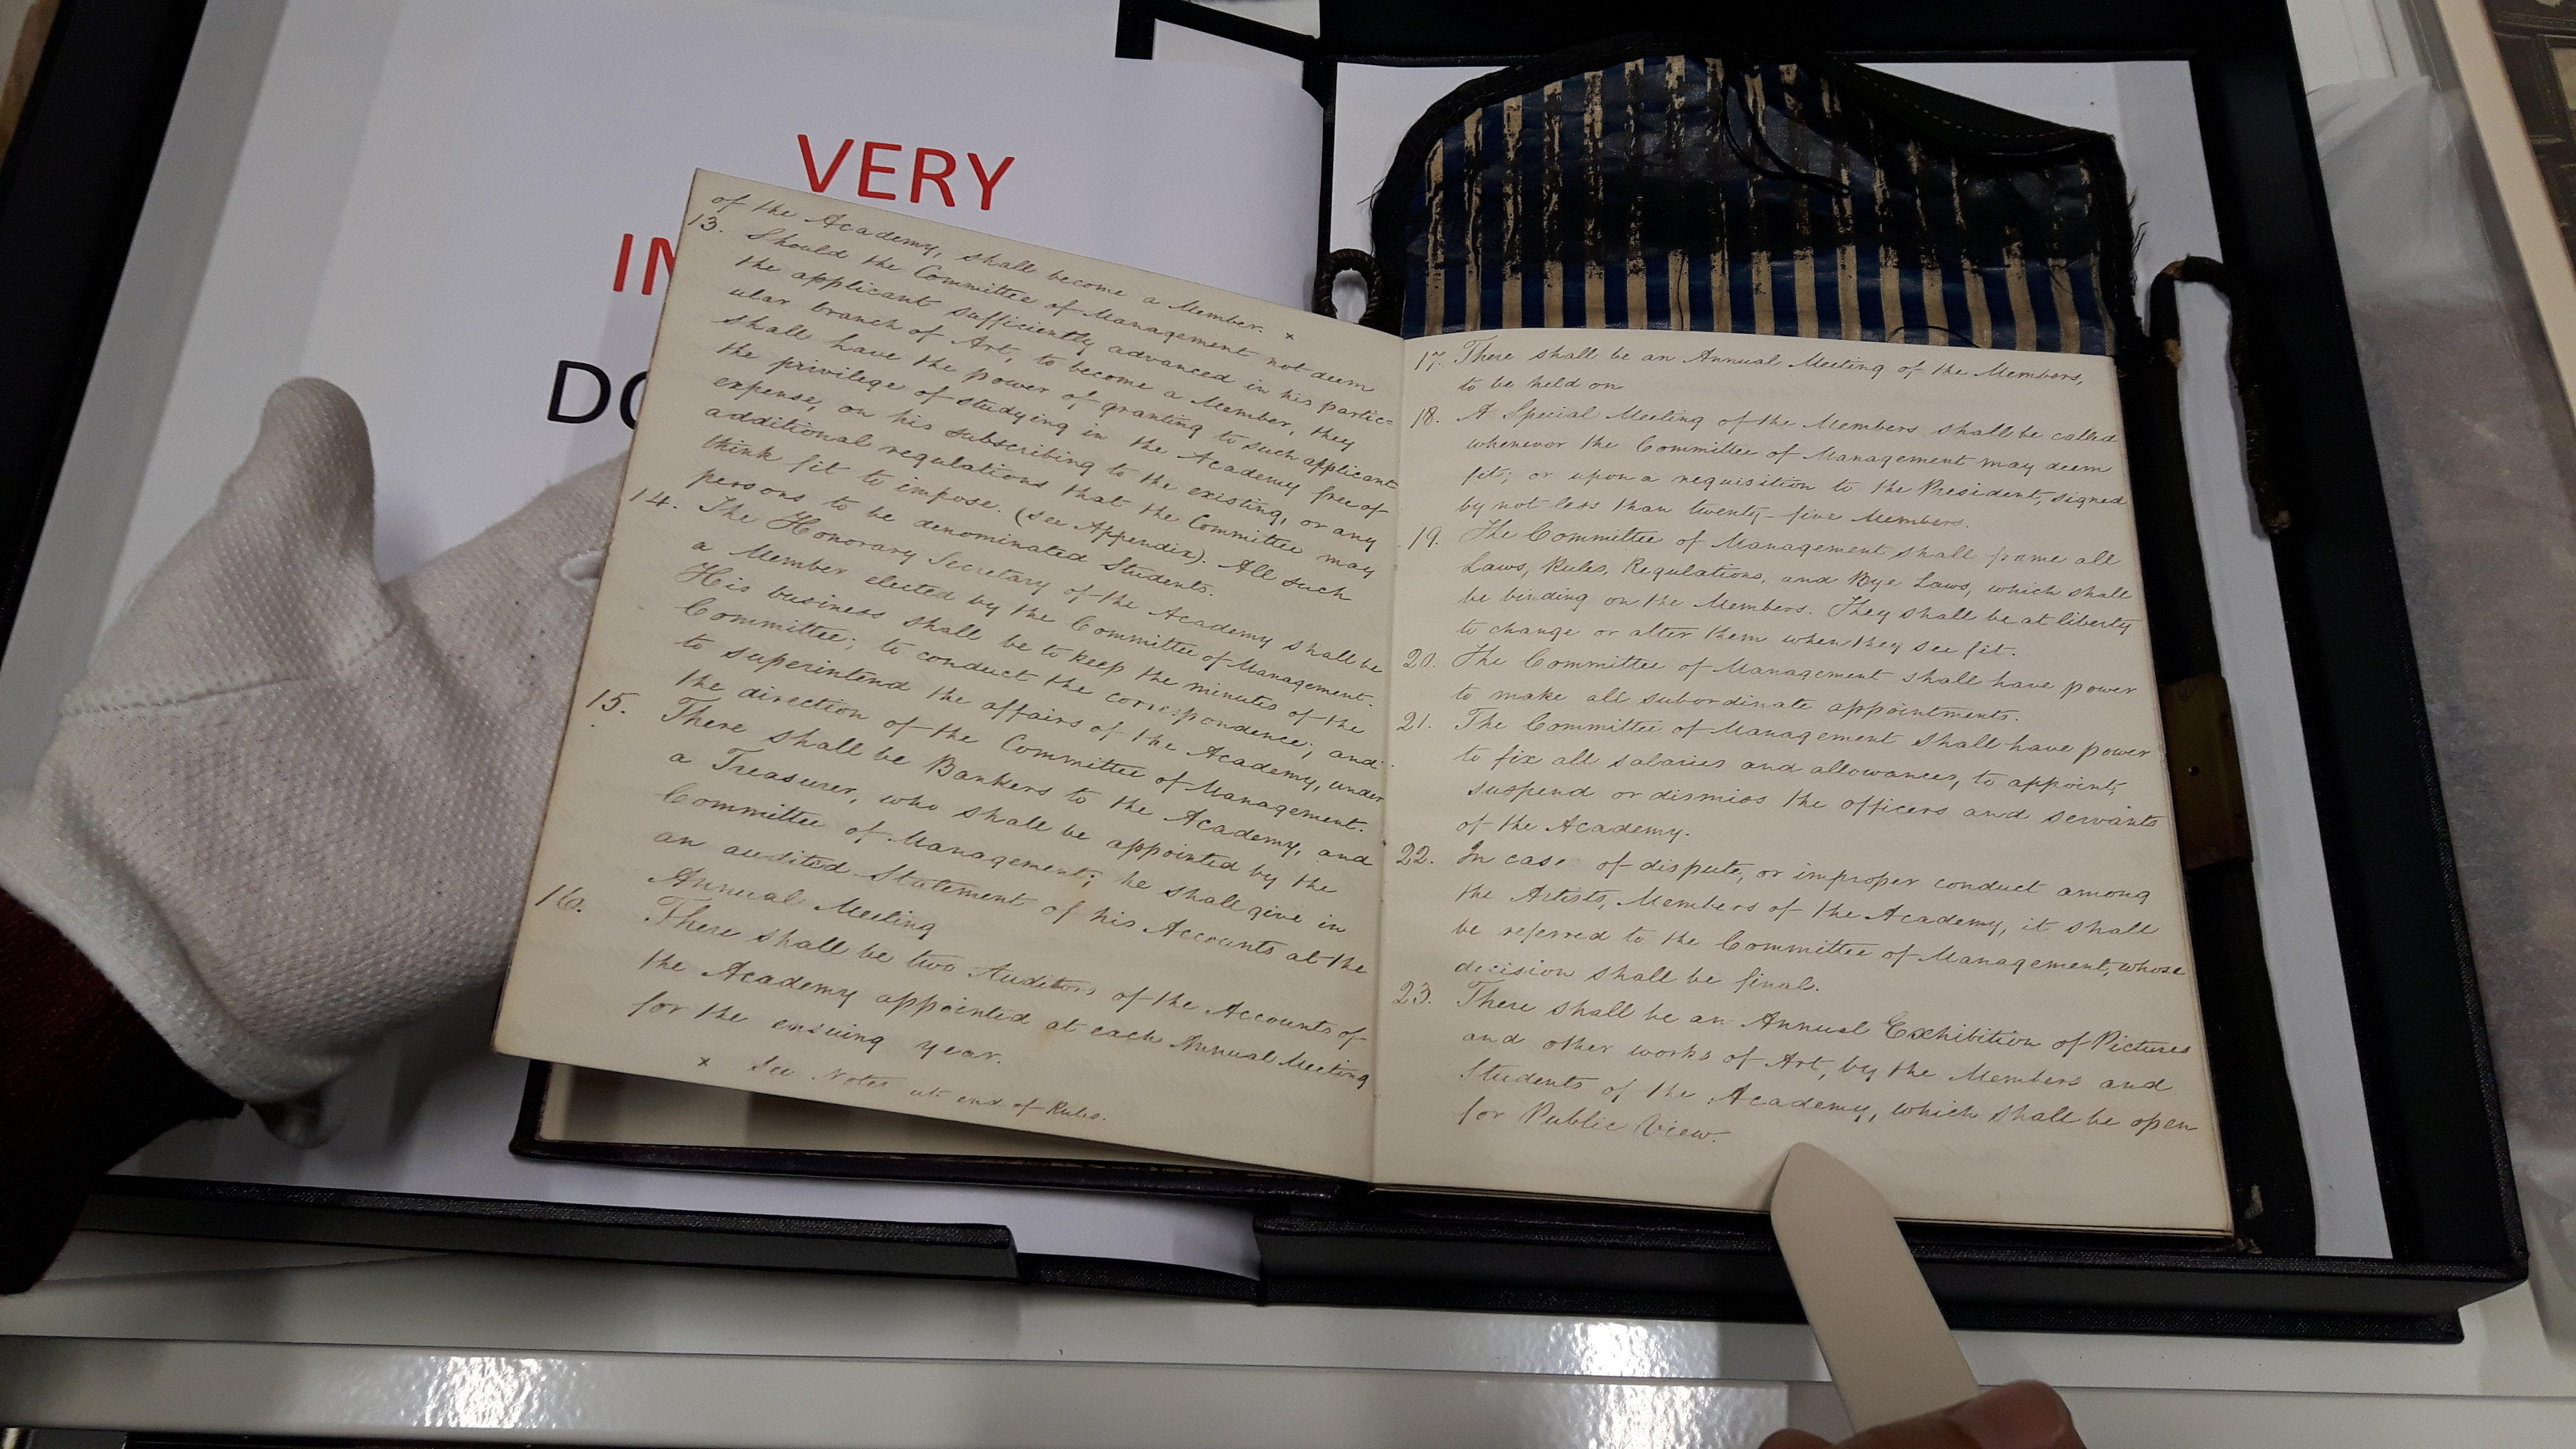 VERY
IM
DO
of the Academy, shall become a Member. x
13. Should the Committee of Management not deem
the applicant sufficiently advanced in his partic=
ular branch of Art, to become a Member, they
shall have the power of granting to such applicant
the privilege of studying in the Academy free of
expense, on his subscribing to the existing, or any
additional regulations that the Committee may
think fit to impose. (see Appendix). All such
persons to be denominated Students.
14. The Honorary Secretary of the Academy shall be
a Member elected by the Committee of Management.
His business shall be to keep the minutes of the
Committee; to conduct the correspondence; and
to superintend the affairs of the Academy, under
the direction of the Committee of Management.
15. There shall be Bankers to the Academy, and
a Treasurer, who shall be appointed by the
Committee of Management; he shall give in
an audited Statement of his Accounts at the
Annual Meeting
16. There shall be two Auditors of the Accounts of
the Academy appointed at each Annual Meeting
for the ensuing year.
x See Notes at end of Rules.
17. There shall be an Annual Meeting of the Members,
to be held on
18. A Special Meeting of the Members shall be called
whenever the Committee of Management may deem
fit; or upon a requisition to the President, signed
by not less than twenty-five Members.
19. The Committee of Management shall frame all
Laws, Rules, Regulations, and Bye Laws, which shall
be binding on the Members. They shall be at liberty
to change or alter them when they see fit.
20. The Committee of Management shall have power
to make all subordinate appointments.
21. The Committee of Management shall have power
to fix all salaries and allowances, to appoint,
suspend or dismiss the officers and servants
of the Academy.
22. In case of dispute, or improper conduct among
the Artists, Members of the Academy, it shall
be referred to the Committee of Management, whose
decision shall be final.
23. There shall be an Annual Exhibition of Pictures
and other works of Art, by the Members and
Students of the Academy, which shall be open
for Public View.